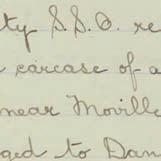 ty S.S.O. re
carcase of a
near Moville
ged to Dan